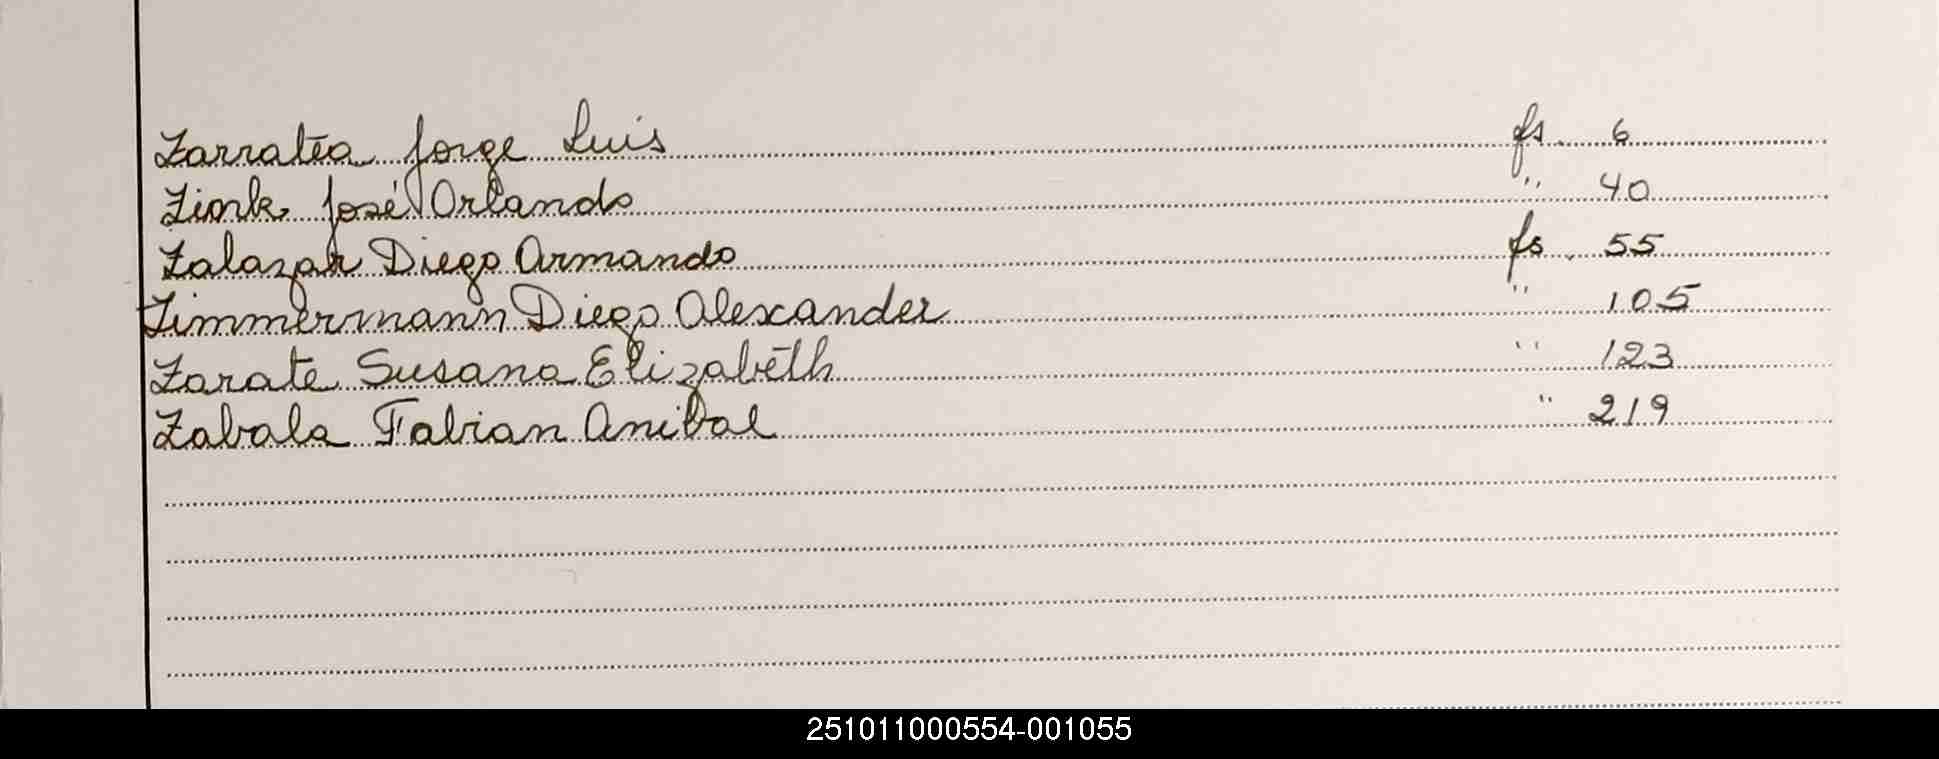 Zarratea Jorge Luis fs. 6
Zink, José Orlando " 40
Zalazar Diego Armando fs. 55
Zimmermann Diego Alexander " 105
Zarate Susana Elizabeth " 123
Zabala Fabian Anibal " 219
251011000554-001055